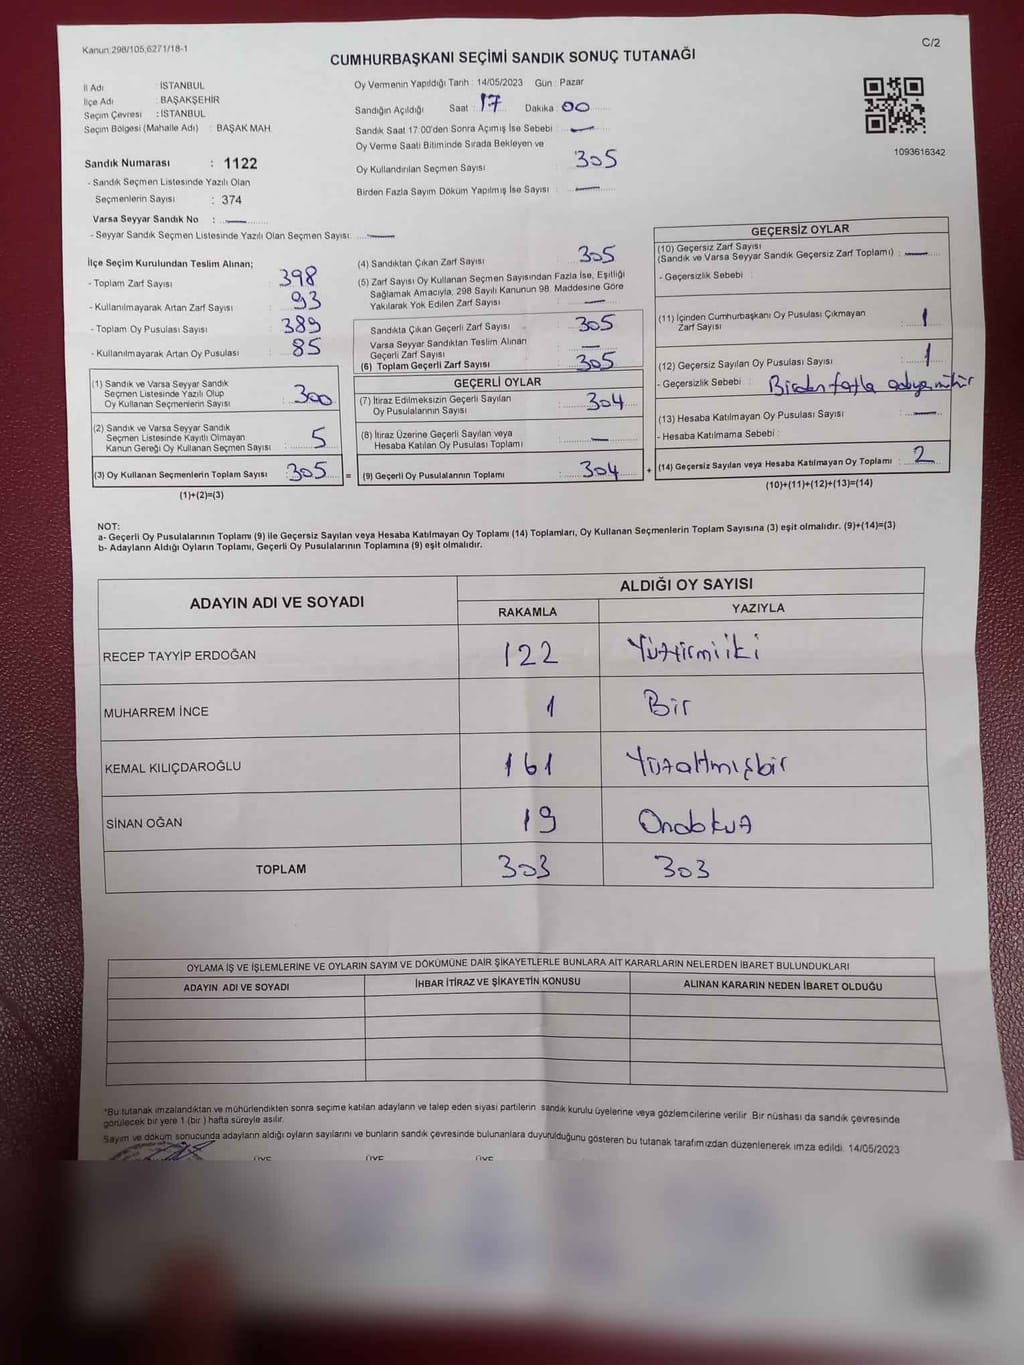 Kanun:298/105,6271/18-1
C/2
CUMHURBAŞKANI SEÇİMİ SANDIK SONUÇ TUTANAĞI
İl Adı : İSTANBUL
İlçe Adı : BAŞAKŞEHİR
Seçim Çevresi : İSTANBUL
Seçim Bölgesi (Mahalle Adı) : BAŞAK MAH.
Sandık Numarası : 1122
- Sandık Seçmen Listesinde Yazılı Olan
Seçmenlerin Sayısı : 374
Varsa Seyyar Sandık No : —
- Seyyar Sandık Seçmen Listesinde Yazılı Olan Seçmen Sayısı: —
Oy Vermenin Yapıldığı Tarih : 14/05/2023 Gün : Pazar
Sandığın Açıldığı Saat : 17 Dakika : 00
Sandık Saat 17:00'den Sonra Açımış İse Sebebi : —
Oy Verme Saati Bitiminde Sırada Bekleyen ve
Oy Kullandırılan Seçmen Sayısı : 305
Birden Fazla Sayım Döküm Yapılmış İse Sayısı : —
1093616342
İlçe Seçim Kurulundan Teslim Alınan;
- Toplam Zarf Sayısı : 398
- Kullanılmayarak Artan Zarf Sayısı : 93
- Toplam Oy Pusulası Sayısı : 389
- Kullanılmayarak Artan Oy Pusulası : 85
(1) Sandık ve Varsa Seyyar Sandık
Seçmen Listesinde Yazılı Olup
Oy Kullanan Seçmenlerin Sayısı : 300
(2) Sandık ve Varsa Seyyar Sandık
Seçmen Listesinde Kayıtlı Olmayan
Kanun Gereği Oy Kullanan Seçmen Sayısı : 5
(3) Oy Kullanan Seçmenlerin Toplam Sayısı : 305 =
(1)+(2)=(3)
(4) Sandıktan Çıkan Zarf Sayısı : 305
(5) Zarf Sayısı Oy Kullanan Seçmen Sayısından Fazla İse, Eşitliği
Sağlamak Amacıyla, 298 Sayılı Kanunun 98. Maddesine Göre
Yakılarak Yok Edilen Zarf Sayısı : —
Sandıkta Çıkan Geçerli Zarf Sayısı : 305
Varsa Seyyar Sandıktan Teslim Alınan
Geçerli Zarf Sayısı : —
(6) Toplam Geçerli Zarf Sayısı : 305
GEÇERLİ OYLAR
(7) İtiraz Edilmeksizin Geçerli Sayılan
Oy Pusulalarının Sayısı : 304
(8) İtiraz Üzerine Geçerli Sayılan veya
Hesaba Katılan Oy Pusulası Toplamı : —
(9) Geçerli Oy Pusulalarının Toplamı : 304 +
GEÇERSİZ OYLAR
(10) Geçersiz Zarf Sayısı
(Sandık ve Varsa Seyyar Sandık Geçersiz Zarf Toplamı) : —
- Geçersizlik Sebebi :
(11) İçinden Cumhurbaşkanı Oy Pusulası Çıkmayan
Zarf Sayısı : 1
(12) Geçersiz Sayılan Oy Pusulası Sayısı : 1
- Geçersizlik Sebebi : Birden fazla
(13) Hesaba Katılmayan Oy Pusulası Sayısı : —
- Hesaba Katılmama Sebebi :
(14) Geçersiz Sayılan veya Hesaba Katılmayan Oy Toplamı : 2
(10)+(11)+(12)+(13)=(14)
NOT:
a- Geçerli Oy Pusulalarının Toplamı (9) ile Geçersiz Sayılan veya Hesaba Katılmayan Oy Toplamı (14) Toplamları, Oy Kullanan Seçmenlerin Toplam Sayısına (3) eşit olmalıdır. (9)+(14)=(3)
b- Adayların Aldığı Oyların Toplamı, Geçerli Oy Pusulalarının Toplamına (9) eşit olmalıdır.
ADAYIN ADI VE SOYADI
ALDIĞI OY SAYISI
RAKAMLA YAZIYLA
RECEP TAYYİP ERDOĞAN 122 Yüzyirmiiki
MUHARREM İNCE 1 Bir
KEMAL KILIÇDAROĞLU 161 Yüzaltmışbir
SİNAN OĞAN 19 Ondokuz
TOPLAM 303 303
OYLAMA İŞ VE İŞLEMLERİNE VE OYLARIN SAYIM VE DÖKÜMÜNE DAİR ŞİKAYETLERLE BUNLARA AİT KARARLARIN NELERDEN İBARET BULUNDUKLARI
ADAYIN ADI VE SOYADI İHBAR İTİRAZ VE ŞİKAYETİN KONUSU ALINAN KARARIN NEDEN İBARET OLDUĞU
*Bu tutanak imzalandıktan ve mühürlendikten sonra seçime katılan adayların ve talep eden siyasi partilerin sandık kurulu üyelerine veya gözlemcilerine verilir. Bir nüshası da sandık çevresinde
görülecek bir yere 1 (bir ) hafta süreyle asılır.
Sayım ve döküm sonucunda adayların aldığı oyların sayılarını ve bunların sandık çevresinde bulunanlara duyurulduğunu gösteren bu tutanak tarafımızdan düzenlenerek imza edildi. 14/05/2023
ÜYE ÜYE ÜYE